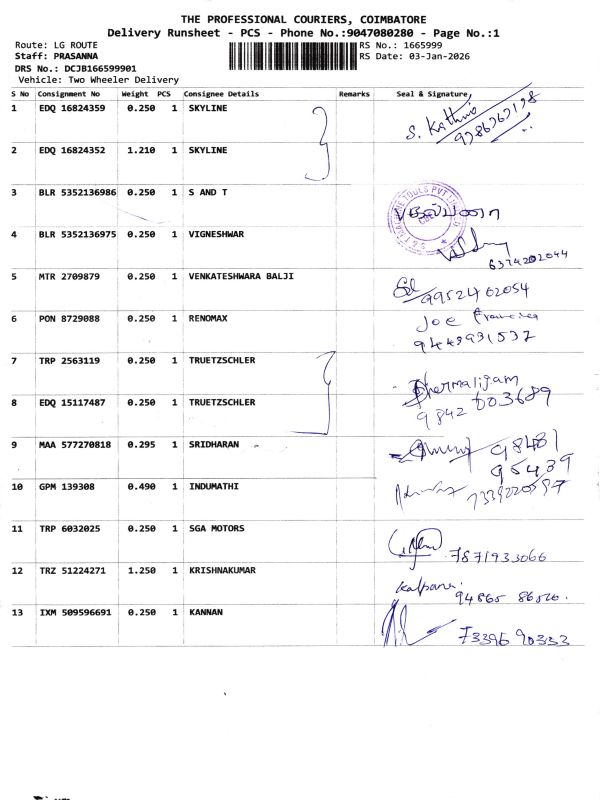 THE PROFESSIONAL COURIERS, COIMBATORE
Delivery Runsheet - PCS - Phone No.:9047080280 - Page No.:1
Route: LG ROUTE RS No.: 1665999
Staff: PRASANNA RS Date: 03-Jan-2026
DRS No.: DCJB166599901
Vehicle: Two Wheeler Delivery
S No Consignment No Weight PCS Consignee Details Remarks Seal & Signature
1 EDQ 16824359 0.250 1 SKYLINE S. Kathir
2 EDQ 16824352 1.210 1 SKYLINE
3 BLR 5352136986 0.250 1 S AND T
4 BLR 5352136975 0.250 1 VIGNESHWAR 6374202044
5 MTR 2709879 0.250 1 VENKATESHWARA BALJI 9952402054
6 PON 8729088 0.250 1 RENOMAX Joe Francies
9443931537
7 TRP 2563119 0.250 1 TRUETZSCHLER Dharmaligam
8 EDQ 15117487 0.250 1 TRUETZSCHLER 9842 603689
9 MAA 577270818 0.295 1 SRIDHARAN 98481
95439
10 GPM 139308 0.490 1 INDUMATHI 7339220597
11 TRP 6032025 0.250 1 SGA MOTORS 7871933066
12 TRZ 51224271 1.250 1 KRISHNAKUMAR Kalpana
94865 86526.
13 IXM 509596691 0.250 1 KANNAN 73395 90333